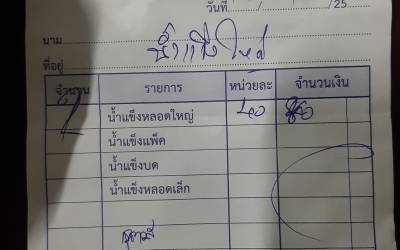 วันที่ ....../....../25......
นาม น้ำแข็งใหม่
ที่อยู่
จำนวน รายการ หน่วยละ จำนวนเงิน
2 น้ำแข็งหลอดใหญ่ 40 80
น้ำแข็งแพ็ค
น้ำแข็งบด
น้ำแข็งหลอดเล็ก